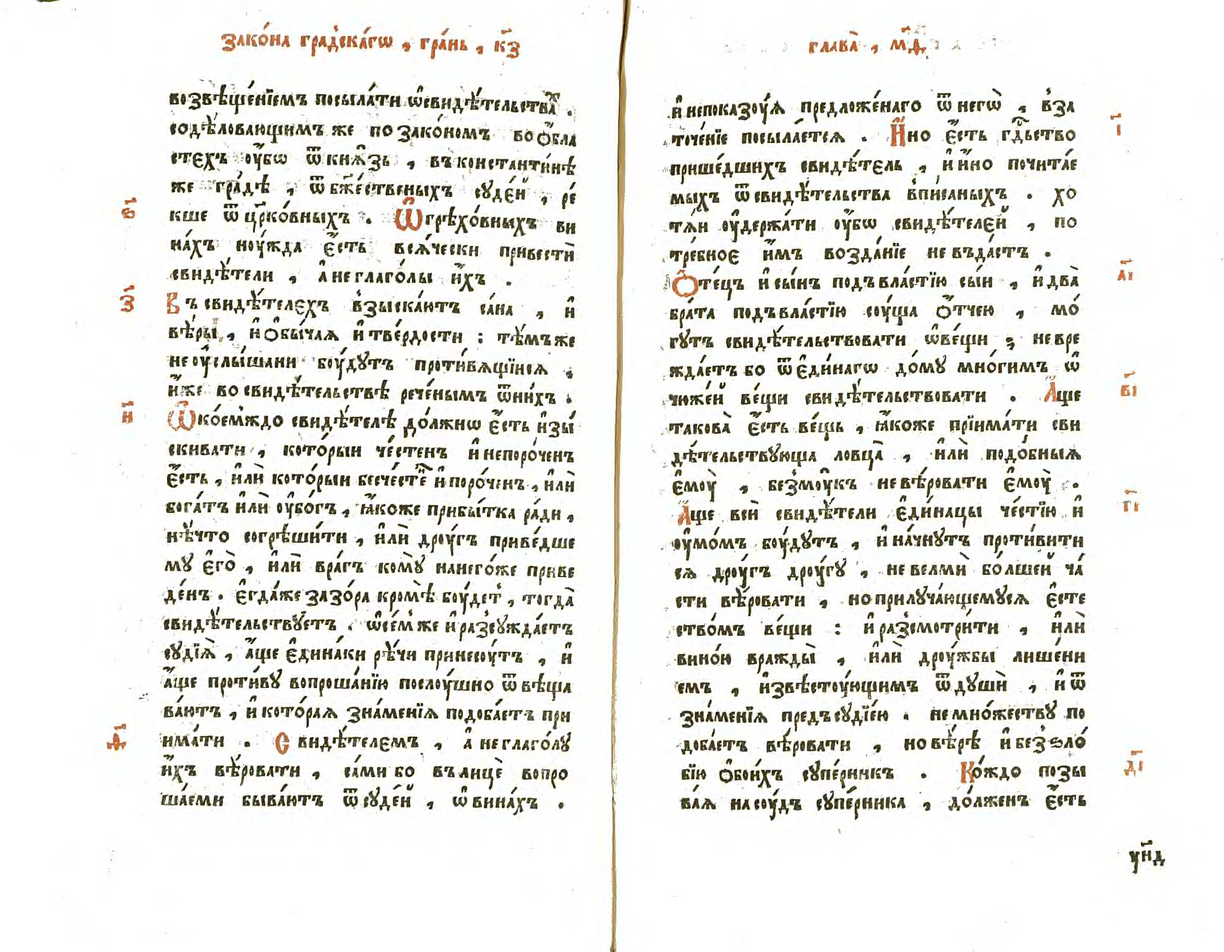 зако́на гра́дскагѡ , гра́нь , к҃з
возвѣще́нїемъ посыла́ти ѡ҆свидѣ́тельства̀ .
содѣ́ловающимъ же по зако́номъ во ѻ҆бла
стехъ ᲂу҆́бѡ ѿ кнѧ́зь , въ константи́нѣ
же гра́дѣ , ѿ бж҃е́ственыхъ суде́й , ре́
кше ѿ цр҃ко́вныхъ . Ѿ грѣхо́вныхъ ви
на́хъ ноу́жда є҆́сть всѧ́чески привестѝ
свидѣ́тели , а҆ не глаго́лы и҆́хъ .
ѕ҃
Въ свидѣ́телехъ взыска́ютъ са́на , и҆
з҃
вѣ́ры , и҆ ѻ҆бы́чаѧ и҆ тве́рдости : тѣ́мъ же
не ᲂу҆слы́шани бо́удутъ проти́вѧщїисѧ .
и҆́же во свидѣ́тельствѣ рече́нымъ ѿ ни́хъ .
Ѡ҆ кое́мждо свидѣ́телѣ до́лжно є҆́сть и҆зы
и҃
скива́ти , кото́рыи че́стенъ и҆ непоро́ченъ
є҆́сть , и҆лѝ кото́рыи бесче́сте и҆ поро́ченъ , и҆лѝ
бога́тъ и҆лѝ ᲂу҆бо́гъ , ꙗ҆́коже прибы́тка ра́ди ,
нѣ́что согрѣши́ти , и҆лѝ дроу́гъ приве́дше
му є҆го̀ , и҆лѝ вра́гъ кому̀ на него́же приве
де́нъ . є҆гда́же зазо́ра кромѣ̀ бо́удет , тогда̀
свидѣ́тельствуетъ . ѡ҆ се́м же и҆ разсужда́етъ
судїѧ̀ , а҆́ще є҆дина́ки рѣ́чи принесо́утъ , и҆
а҆́ще проти́ву вопроша́нїю послоу́шно ѿвѣща
ва́ютъ , и҆ кото́раѧ зна́менїѧ подоба́етъ при
има́ти . Свидѣ́телемъ , а҆ не глаго́лу
ѳ҃
и҆́хъ вѣ́ровати , са́ми бо въ лицѐ вопро
ша́еми быва́ютъ ѿ суде́й , ѡ҆ вина́хъ .
глава̀ , м҃д
и҆ непоказо́уѧ предложе́наго ѿ негѡ̀ , вза
точе́нїе посыла́етсѧ . И҆́но є҆́сть гд҇ьство
і҃
прише́дшихъ свидѣ́тель , и҆ и҆́но почита́е
мыхъ ѿ свидѣ́тельства впи́саныхъ . хо
тѧ́и ᲂу҆держа́ти ᲂу҆́бѡ свидѣ́телей , по
тре́бное и҆̀мъ возда́нїе не въда́стъ .
Ѻ҆те́цъ и҆ сы́нъ подъ вла́стїю сы́и , и҆ два̀
а҃і
бра́та подъ вла́стїю со́уща ѻ҆́тчею , мо́
гутъ свидѣ́тельствовати ѡ҆ ве́щи ; не вре
жда́етъ бо ѿ є҆ди́нагѡ до́му мно́гимъ ѡ҆
чюже́й ве́щи свидѣ́тельствовати . А҆́ще
в҃і
такова̀ є҆́сть ве́щь , ꙗ҆́коже прїима́ти сви
дѣ́тельствующа ловца̀ , и҆лѝ подо́быѧ
є҆мо́у , без мо́укъ не вѣ́ровати є҆мо́у .
А҆́ще всѝ свидѣ́тели є҆дина́цы че́стїю и҆
г҃і
ᲂу҆мо́мъ бо́удутъ , и҆ начну́тъ проти́вити
сѧ дроу́гъ дроу́гу , не велмѝ бо́лшей ча́
сти вѣ́ровати , но прилуча́ющемусѧ є҆сте
ство́мъ ве́щи : и҆ разсмотри́ти , и҆лѝ
вино́ю вражды̀ , и҆лѝ дроу́жбы лише́ни
емъ , и҆звѣсто́ующимъ ѿ душѝ , и҆ ѿ
зна́менїѧ предъ судїе́ю . не мно́жеству по
доба́етъ вѣ́ровати , но вѣ́рѣ и҆ безѕло́
бїю ѻ҆бои́хъ супе́рникъ . Ко́ждо позы
д҃і
ва́ѧ на со́удъ супе́рника , до́лженъ є҆́сть
ун҃д